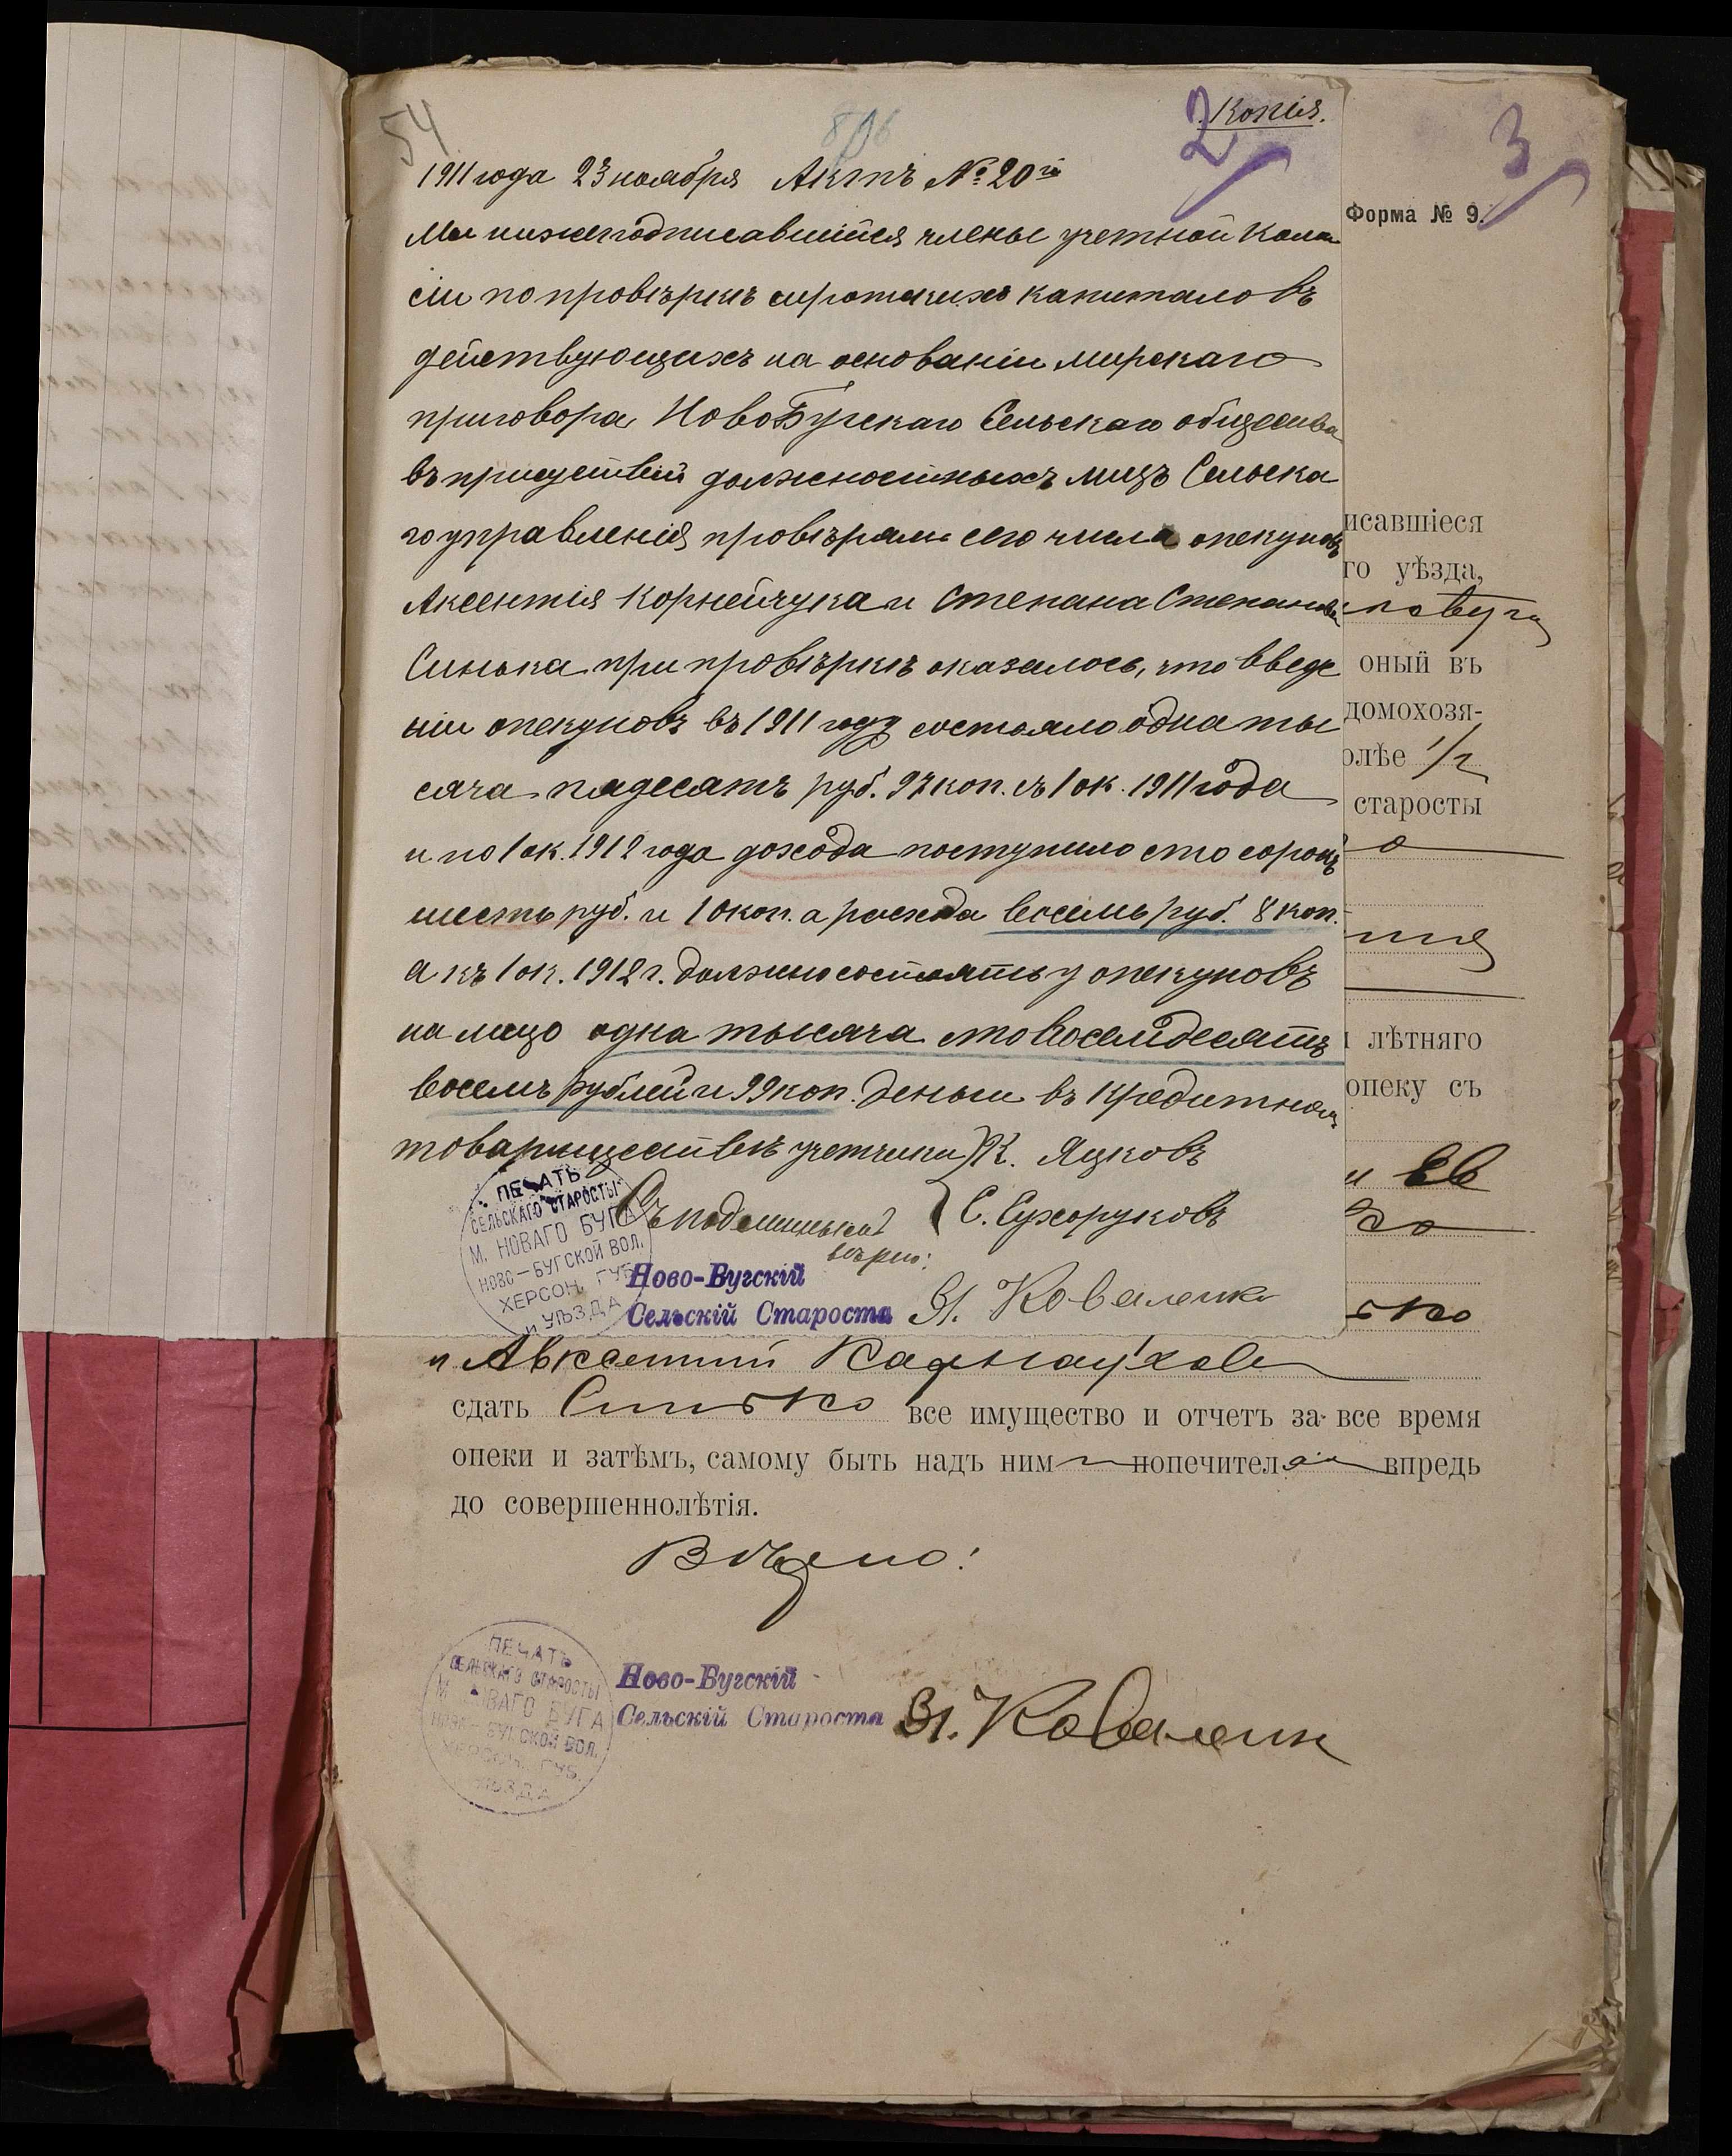 54
806
2
Копія.
3
1911 года 23 ноября Актъ № 20й
Форма № 9.
Мы нижеподписавшійся члены учетной Коми
сіи по провѣркѣ сиротскихъ капиталовъ
действующихъ на основаніи мирскаго
приговора НовоБугскаго Сельскаго общества
въ присутствій должностныхъ лицъ Сельска
го управленія провѣряли сего числа опекуновъ
исавшіеся
го уѣзда,
Аксентія Корнейчука и Степана Степанова
Синька при провѣркѣ оказалось, что введе
оный въ
ніи опекуновъ въ 1911 году состояло одна ты
домохозя-
сяча пядесятъ руб. 97 коп. съ 1 ок. 1911 года
олѣе 1/2
старосты
и по 1 ок. 1912 года дохода поступило сто сорокъ
шесть руб. и 10 коп. а расхода восемь руб. 8 коп.
а къ 1 ок. 1912 г. должно состоять у опекуновъ
на лицо одна тысяча стовосемдесятъ
лѣтняго
восемъ рублей и 99 коп. деньги въ Кредитномъ
опеку съ
товариществѣ учетчики) К. Яцковъ
Съ подлинным
{ С. Сухоруковъ
вѣрно:
ПЕЧАТЬ
СЕЛЬСКАГО СТАРОСТЫ
М. НОВАГО БУГА
НОВО-БУГСКОЙ ВОЛ.
ХЕРСОН. ГУБ.
и УѢЗДА
Ново-Бугскій
Сельскій Староста Вл. Коваленко
и Авксентий
сдать Синько все имущество и отчетъ за все время
опеки и затѣмъ, самому быть надъ ним попечител впредь
до совершеннолѣтія.
Вѣрно!
ПЕЧАТЬ
СЕЛЬСКАГО СТАРОСТЫ
М. НОВАГО БУГА
НОВО-БУГСКОЙ ВОЛ.
ХЕРСОН. ГУБ.
УѢЗДА
Ново-Бугскій
Сельскій Староста Вл. Коваленк